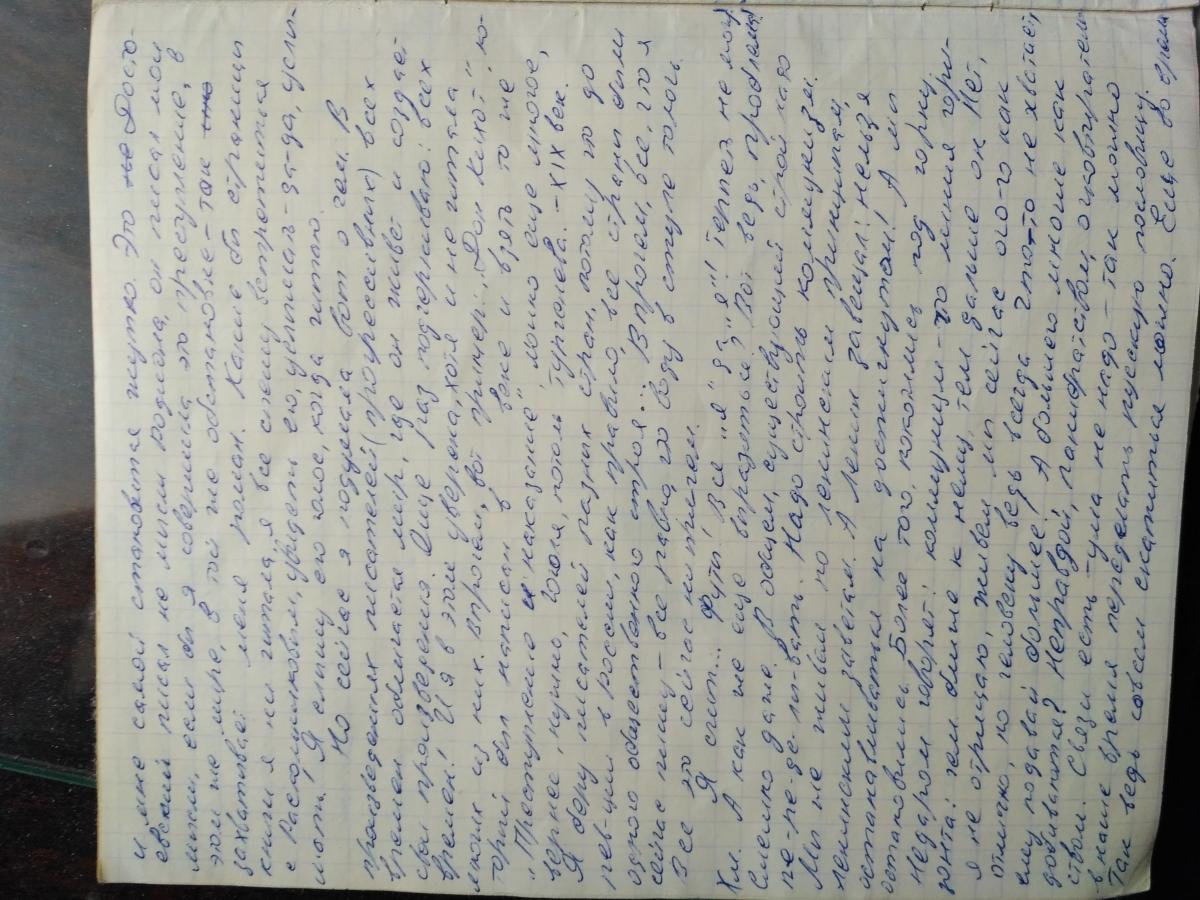 и мне самой становится жутко. Это не Досто-
евский писал не мысли Родиона, он писал мои
мысли, если бы я совершила это преступление, в
этом же мире, в той же обстановке – так
захватывает меня роман. Какие бы страницы
книги я ни читала, я все спешу встретиться
с Раскольниковым, увидеть его, услышать – да-да, услы-
шать! Я слышу его голос, когда читаю.
Но сейчас я подумала вот о чем. В
произведениях писателей (прогрессивных) всех
времен обличается мир, где он живет и создает
свои произведения. Еще раз подчеркиваю: всех
времен! И я в этом уверена, хотя и не читала
многих из них. Впрочем, вот пример: „Дон Кихот", ко-
торый был написан в веке и взять то же
„Преступление и наказание" можно еще многое,
вернее, нужно, Гоголя, Тургенева. – XIX век.
Я беру писателей разных стран, потому что до
рев-ции в России, как правило, все страны были
одного общественного строя... Впрочем, все, что я
сейчас пишу – все равно, что воду в ступе толочь
Все это сейчас ни при чем.
Я сыт... Футы! Все „я" да „я"! Терпеть не могу.
Хм. А как же еще выразиться? Вот ведь, проблема!
Смешно даже. В общем, существующий строй надо
пе-ре-де-лы-вать. Надо строить коммунизм.
Мы же живем по ленинским принципам,
ленинским заветам. А Ленин завещал: нельзя
останавливаться на достигнутом! А мы
остановились. Более того, покатились под горку.
Недаром говорят: коммунизм – то линия гори-
зонта: чем ближе к нему, тем дальше он. Нет,
я не отрицаю, живем мы сейчас ого-го как
отлично, но человеку ведь всегда что-то не хватает,
ему подавай больше! А больше многие как
добиваются? Неправдой, панибратством, очковтиратель-
ством. Связи есть – ума не надо – так можно
в наше время переделать русскую пословицу.
Так ведь совсем скатиться можно. Еще во время